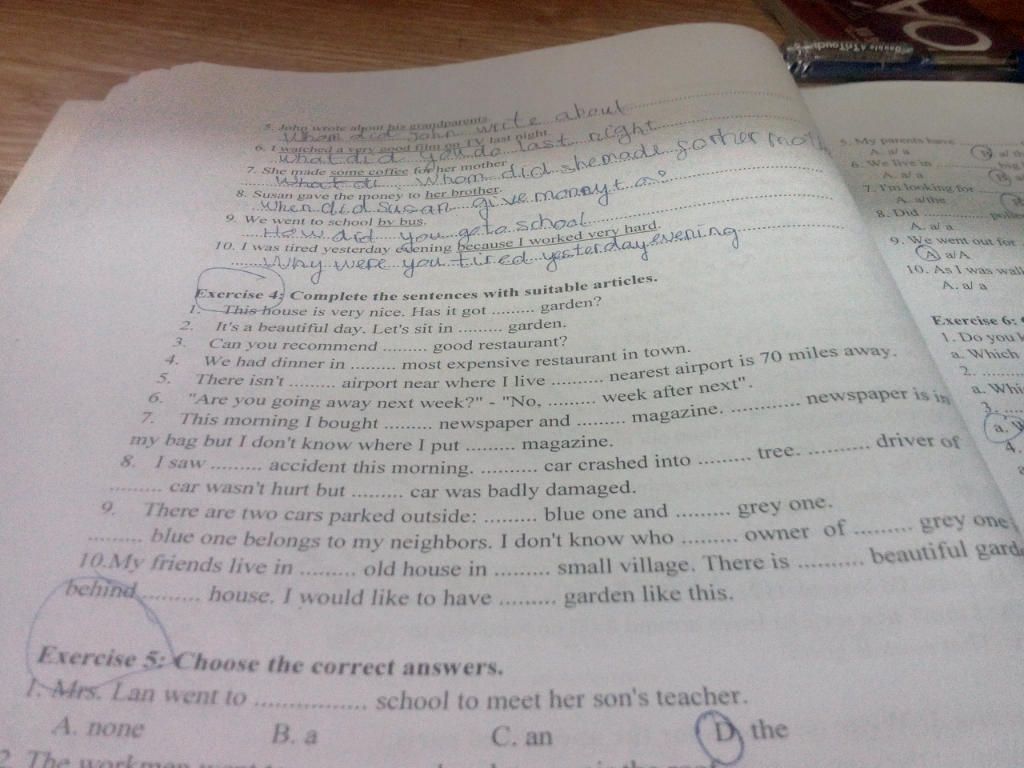 5. John wrote about his grandparents.
Whom did John write about
6. I watched a very good film on TV last night.
What did you do last night
7. She made some coffee for her mother
Whom did she made
8. Susan gave the money to her brother.
When did Susan give money to?
9. We went to school by bus.
How did you go to school
10. I was tired yesterday evening because I worked very hard.
Why were you tired yesterday evening
Exercise 4: Complete the sentences with suitable articles.
1. This house is very nice. Has it got ......... garden?
2. It's a beautiful day. Let's sit in ......... garden.
3. Can you recommend ......... good restaurant?
4. We had dinner in ......... most expensive restaurant in town.
5. There isn't ......... airport near where I live .......... nearest airport is 70 miles away.
6. "Are you going away next week?" - "No, .......... week after next".
7. This morning I bought ......... newspaper and ......... magazine. ............. newspaper is in
my bag but I don't know where I put ......... magazine.
8. I saw ......... accident this morning. .......... car crashed into ......... tree. ........... driver of
.......... car wasn't hurt but ......... car was badly damaged.
9. There are two cars parked outside: ......... blue one and ......... grey one.
.......... blue one belongs to my neighbors. I don't know who .......... owner of .......... grey one
10.My friends live in ......... old house in ......... small village. There is .......... beautiful gard
behind.......... house. I would like to have ......... garden like this.
Exercise 5: Choose the correct answers.
1. Mrs. Lan went to ................. school to meet her son's teacher.
A. none B. a C. an D. the
2. The workmen
5. My parents have
A. a/ a
6. We live in
A. a/ a
7. I'm looking for
A. a/the
8. Did
A. a/ a
9. We went out for
A. a/A
10. As I was walk
A. a/ a
Exercise 6:
1. Do you
a. Which
2. ..........
a. Whi
3. ....
a. W
4.